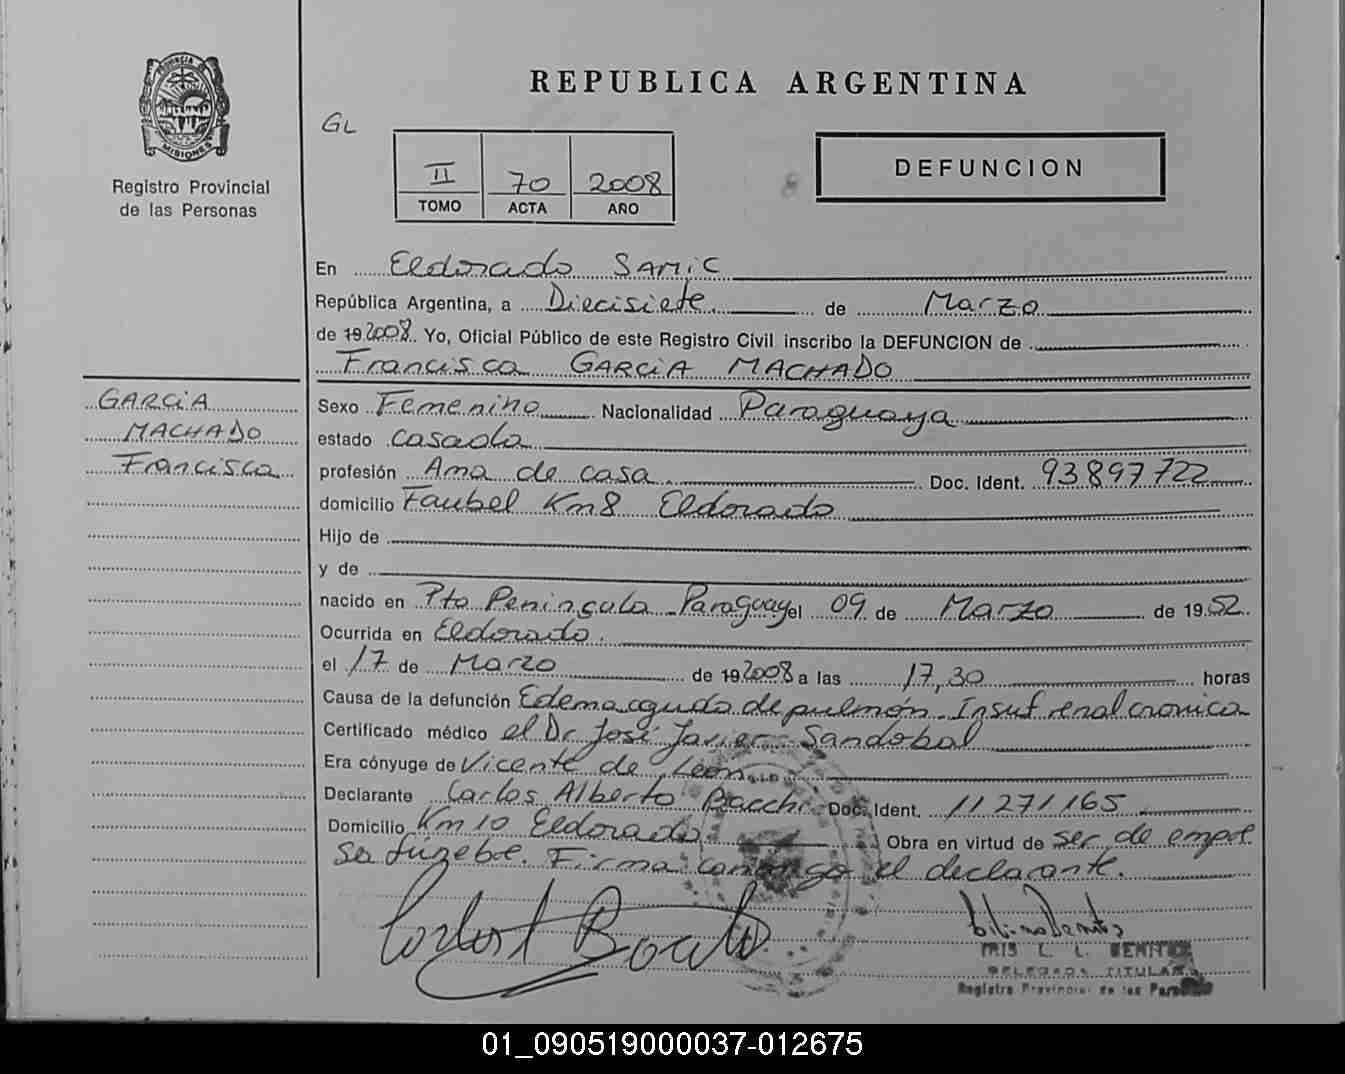 PROVINCIA DE
MISIONES
Registro Provincial
de las Personas
REPUBLICA ARGENTINA
GL
II 70 2008
TOMO ACTA AÑO
DEFUNCION
En Eldorado SAMIC
República Argentina, a Diecisiete de Marzo
de 192008. Yo, Oficial Público de este Registro Civil inscribo la DEFUNCION de
Francisca GARCIA MACHADO
GARCIA
MACHADO
Francisca
Sexo Femenino Nacionalidad Paraguaya
estado casada
profesión Ama de casa. Doc. Ident. 93897722
domicilio Faubel Km8 Eldorado
Hijo de
y de
nacido en Pto Peninsula Paraguay el 09 de Marzo de 1952
Ocurrida en Eldorado.
el 17 de Marzo de 192008 a las 17,30 horas
Causa de la defunción Edema agudo de pulmón Insuf renal cronica
Certificado médico el Dr José Javier Sandobal
Era cónyuge de Vicente de Leon
Declarante Carlos Alberto Bacchi Doc. Ident. 11271165
Domicilio Km 10 Eldorado Obra en virtud de ser de empre
sa fúnebre. Firma conmigo el declarante.
IRIS L. L. BENITEZ
DELEGADA TITULAR
Registro Provincial de las Personas
01_090519000037-012675